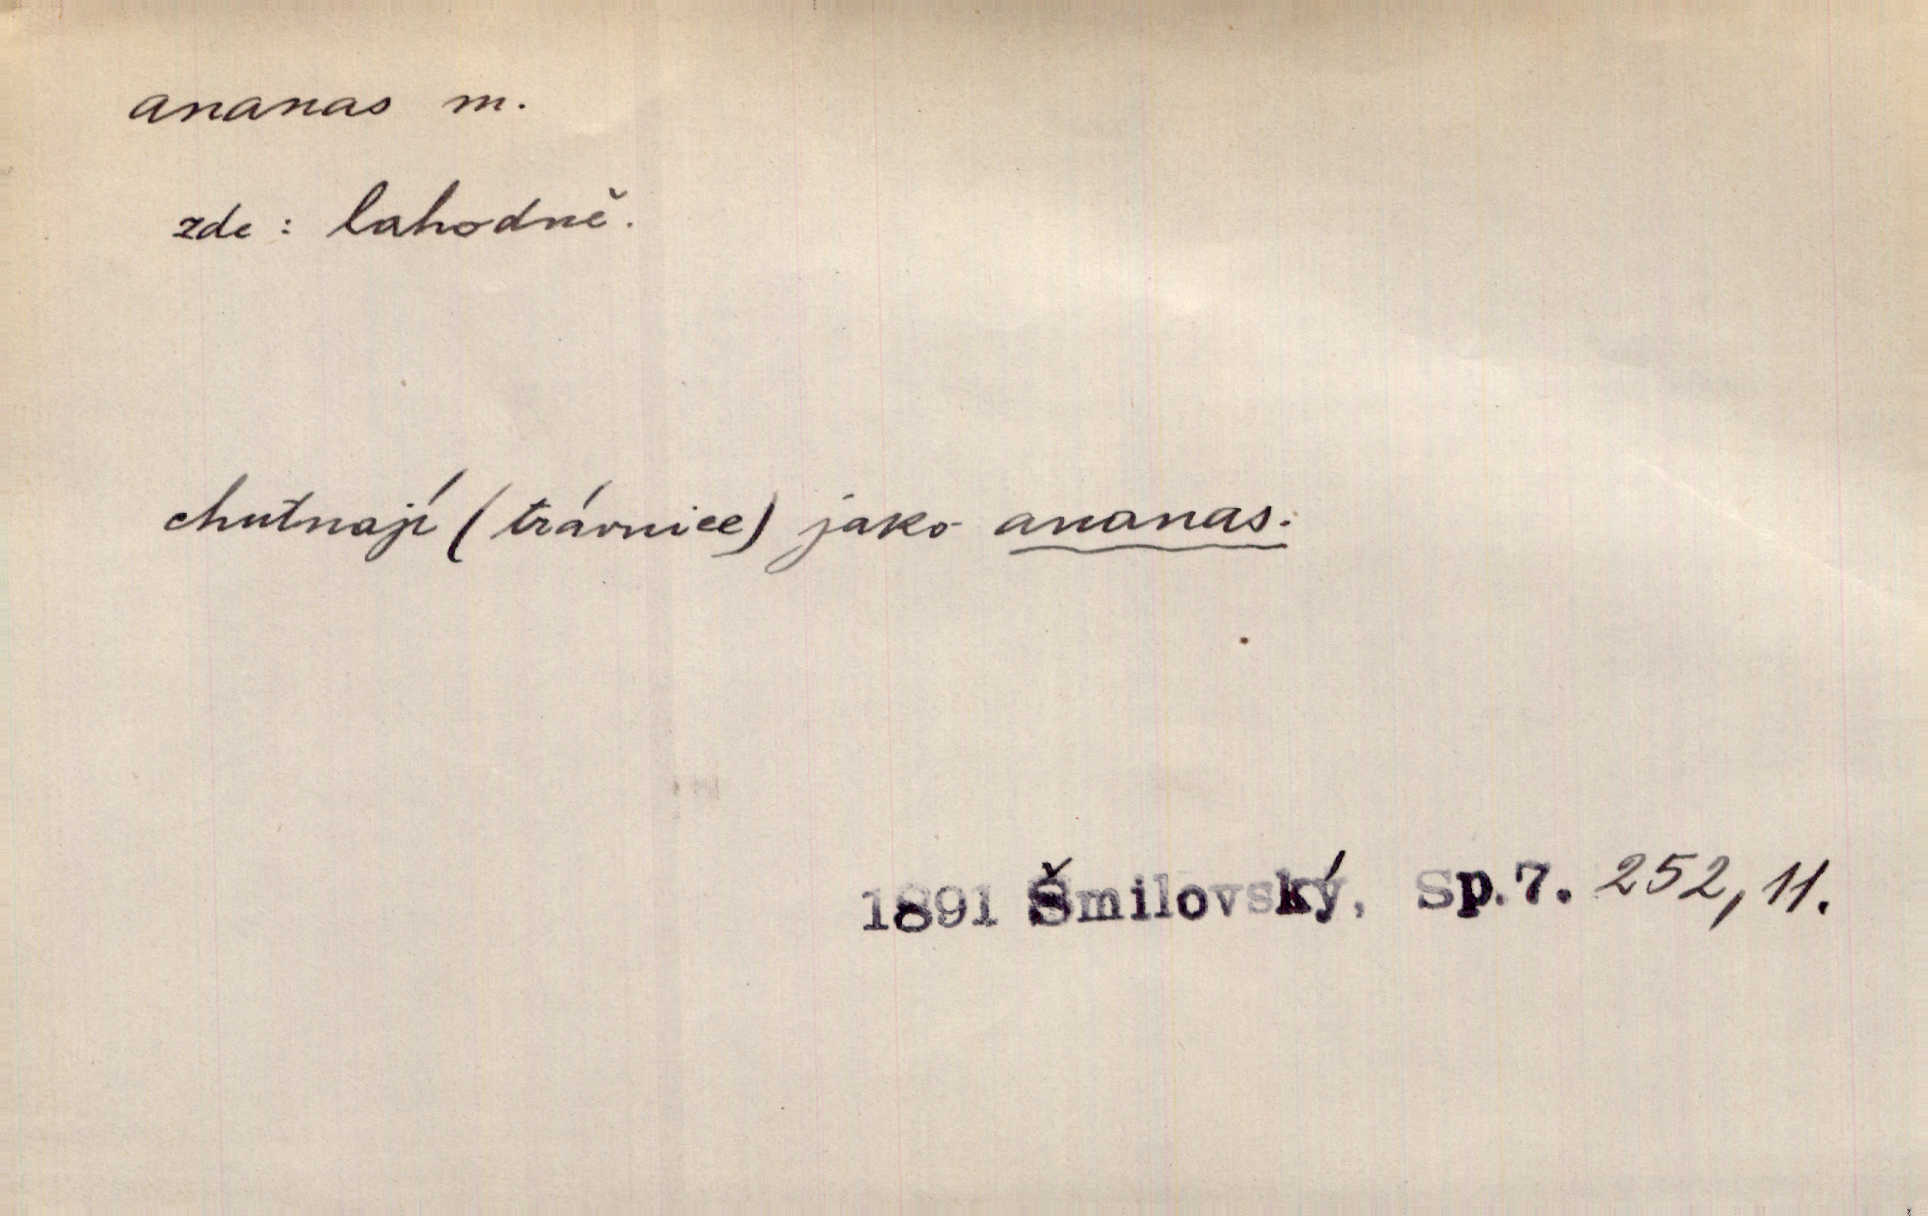 ananas m.
zde: lahodně.
chutnají (trávnice) jako ananas.
1891 Šmilovský, Sp.7. 252, 11.